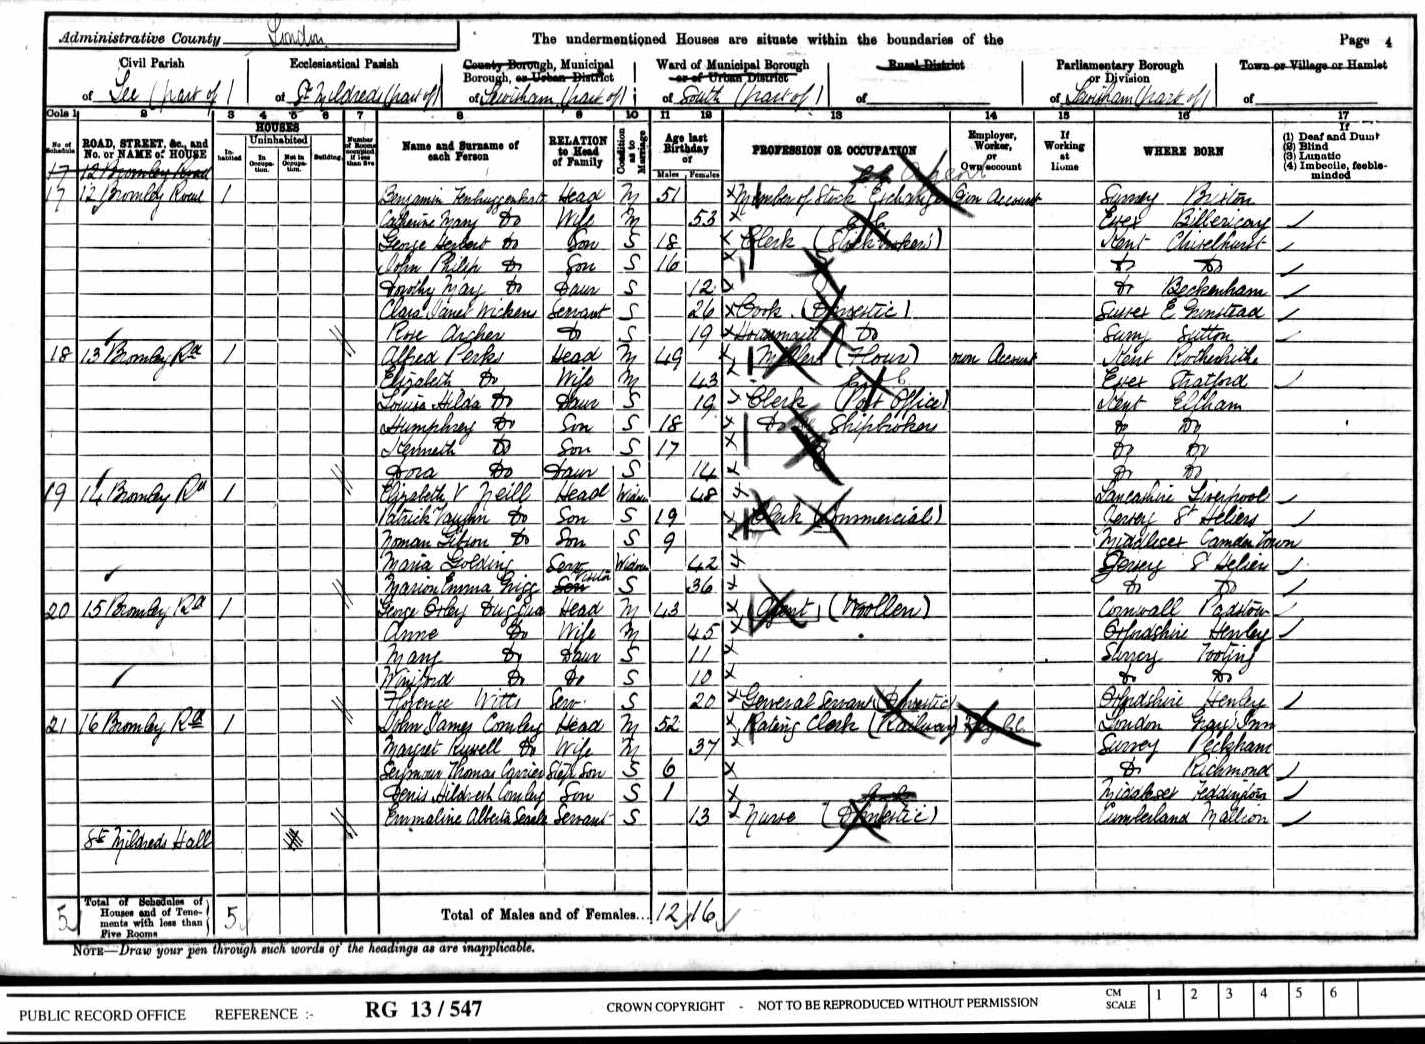 Administrative County London The undermentioned Houses are situate within the boundaries of the Page 4
Civil Parish Ecclesiastical Parish County Borough, Municipal Borough, or Urban District Ward of Municipal Borough or of Urban District Rural District Parliamentary Borough or Division Town or Village or Hamlet
of Lee (part of) of St Mildreds (part of) of Lewisham (part of) of South (part of) of of Lewisham (part of) of
Cols 1 2 3 4 5 6 7 8 9 10 11 12 13 14 15 16 17
No of Schedule ROAD, STREET, &c., and No. or NAME of HOUSE HOUSES Inhabited Uninhabited In Occupation Not in Occupation Building Number of Rooms occupied if less than five Name and Surname of each Person RELATION to Head of Family Condition as to Marriage Age last Birthday of Males Females PROFESSION OR OCCUPATION Employer, Worker, or Own account If Working at Home WHERE BORN If (1) Deaf and Dumb (2) Blind (3) Lunatic (4) Imbecile, feeble-minded
17 12 Bromley Road
17 12 Bromley Road 1 Benjamin Head M 51 Member of Stock Exchange Own Account Surrey Brixton
Catherine Mary Do Wife M 53 Essex Billericay
George Herbert Do Son S 18 Clerk (Stockbrokers) Kent Chiselhurst
John Philip Do Son S 16 Do Do
Dorothy May Do Daur S 12 Do Beckenham
Clara Janet Wickens Servant S 26 Cook (Domestic) Sussex E Grinstead
Rose Archer Do S 19 Housemaid Do Surry Sutton
18 13 Bromley Rd 1 Alfred Perks Head M 49 Miller (Flour) own Account Kent Rotherhithe
Elizabeth Do Wife M 43 Essex Stratford
Louisa Hilda Do Daur S 19 Clerk (Post Office) Kent Eltham
Humphrey Do Son S 18 Do Shipbrokers Do Do
Kenneth Do Son S 17 Do Do
Dora Do Daur S 14 Do Do
19 14 Bromley Rd 1 Elizabeth V Neill Head Widow 48 Lancashire Liverpool
Patrick Vaughn Do Son S 19 Clerk (Commercial) Jersey St Heliers
Norman Gibson Do Son S 9 Middlesex Camden Town
Maria Golding Serv Widow 42 Jersey St Heliers
Marion Emma Grigg Serv Visitor S 36 Do Do
20 15 Bromley Rd 1 George Oxley Head M 43 Agent (Woollen) Cornwall Padstow
Anne Do Wife M 45 Oxfordshire Henley
Mary Do Daur S 11 Surrey Tooting
Winifred Do Do S 10 Do Do
Florence Witts Serv S 20 General Servant (Domestic) Oxfordshire Henley
21 16 Bromley Rd 1 John James Comley Head M 52 Rating Clerk (Railway) London Grays Inn
Margret Russell Do Wife M 37 Surrey Peckham
Seymour Thomas Carrier Step Son S 6 Do Richmond
Denis Hildreth Comley Son S 1 Middlesex Teddington
Emmaline Alberta Servant S 13 Nurse (Domestic) Cumberland
St Mildreds Hall
5 Total of Schedules of Houses and of Tenements with less than Five Rooms 5 Total of Males and of Females... 12 16
NOTE—Draw your pen through such words of the headings as are inapplicable.
PUBLIC RECORD OFFICE REFERENCE :- RG 13 / 547 CROWN COPYRIGHT - NOT TO BE REPRODUCED WITHOUT PERMISSION CM SCALE 1 2 3 4 5 6